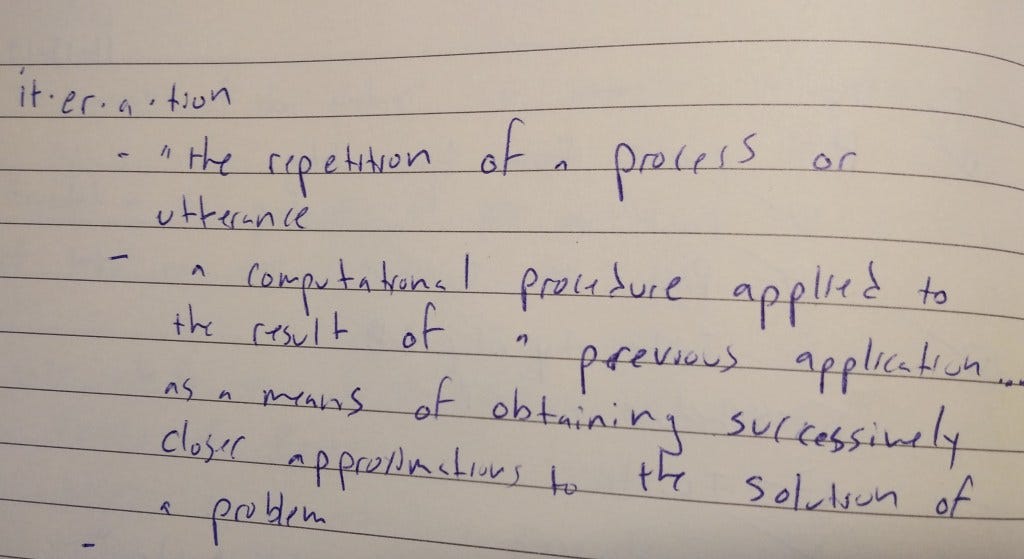 it·er·a·tion
- "the repetition of a process or
utterance
- a computational procedure applied to
the result of a previous application...
as a means of obtaining successively
closer approximations to the solution of
a problem
-